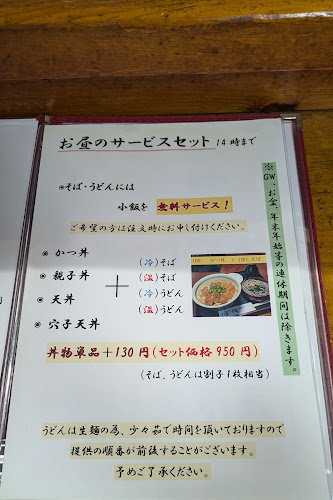 お昼のサービスセット 14時まで
※GW、お盆、年末年始等の連休期間は除きます。
◉そば・うどんには
小飯を 無料サービス！
ご希望の方は注文時にお申し付けください。
◆ かつ丼
◆親子丼
◆ 天丼
◆ 穴子天丼
＋
(冷)そば
(温)そば
(冷)うどん
(温)うどん
丼物単品＋130円(セット価格950円)
(そば、うどんは割子1枚相当)
うどんは生麺の為、少々茹で時間を頂いておりますので
提供の順番が前後することがございます。
予めご了承ください。